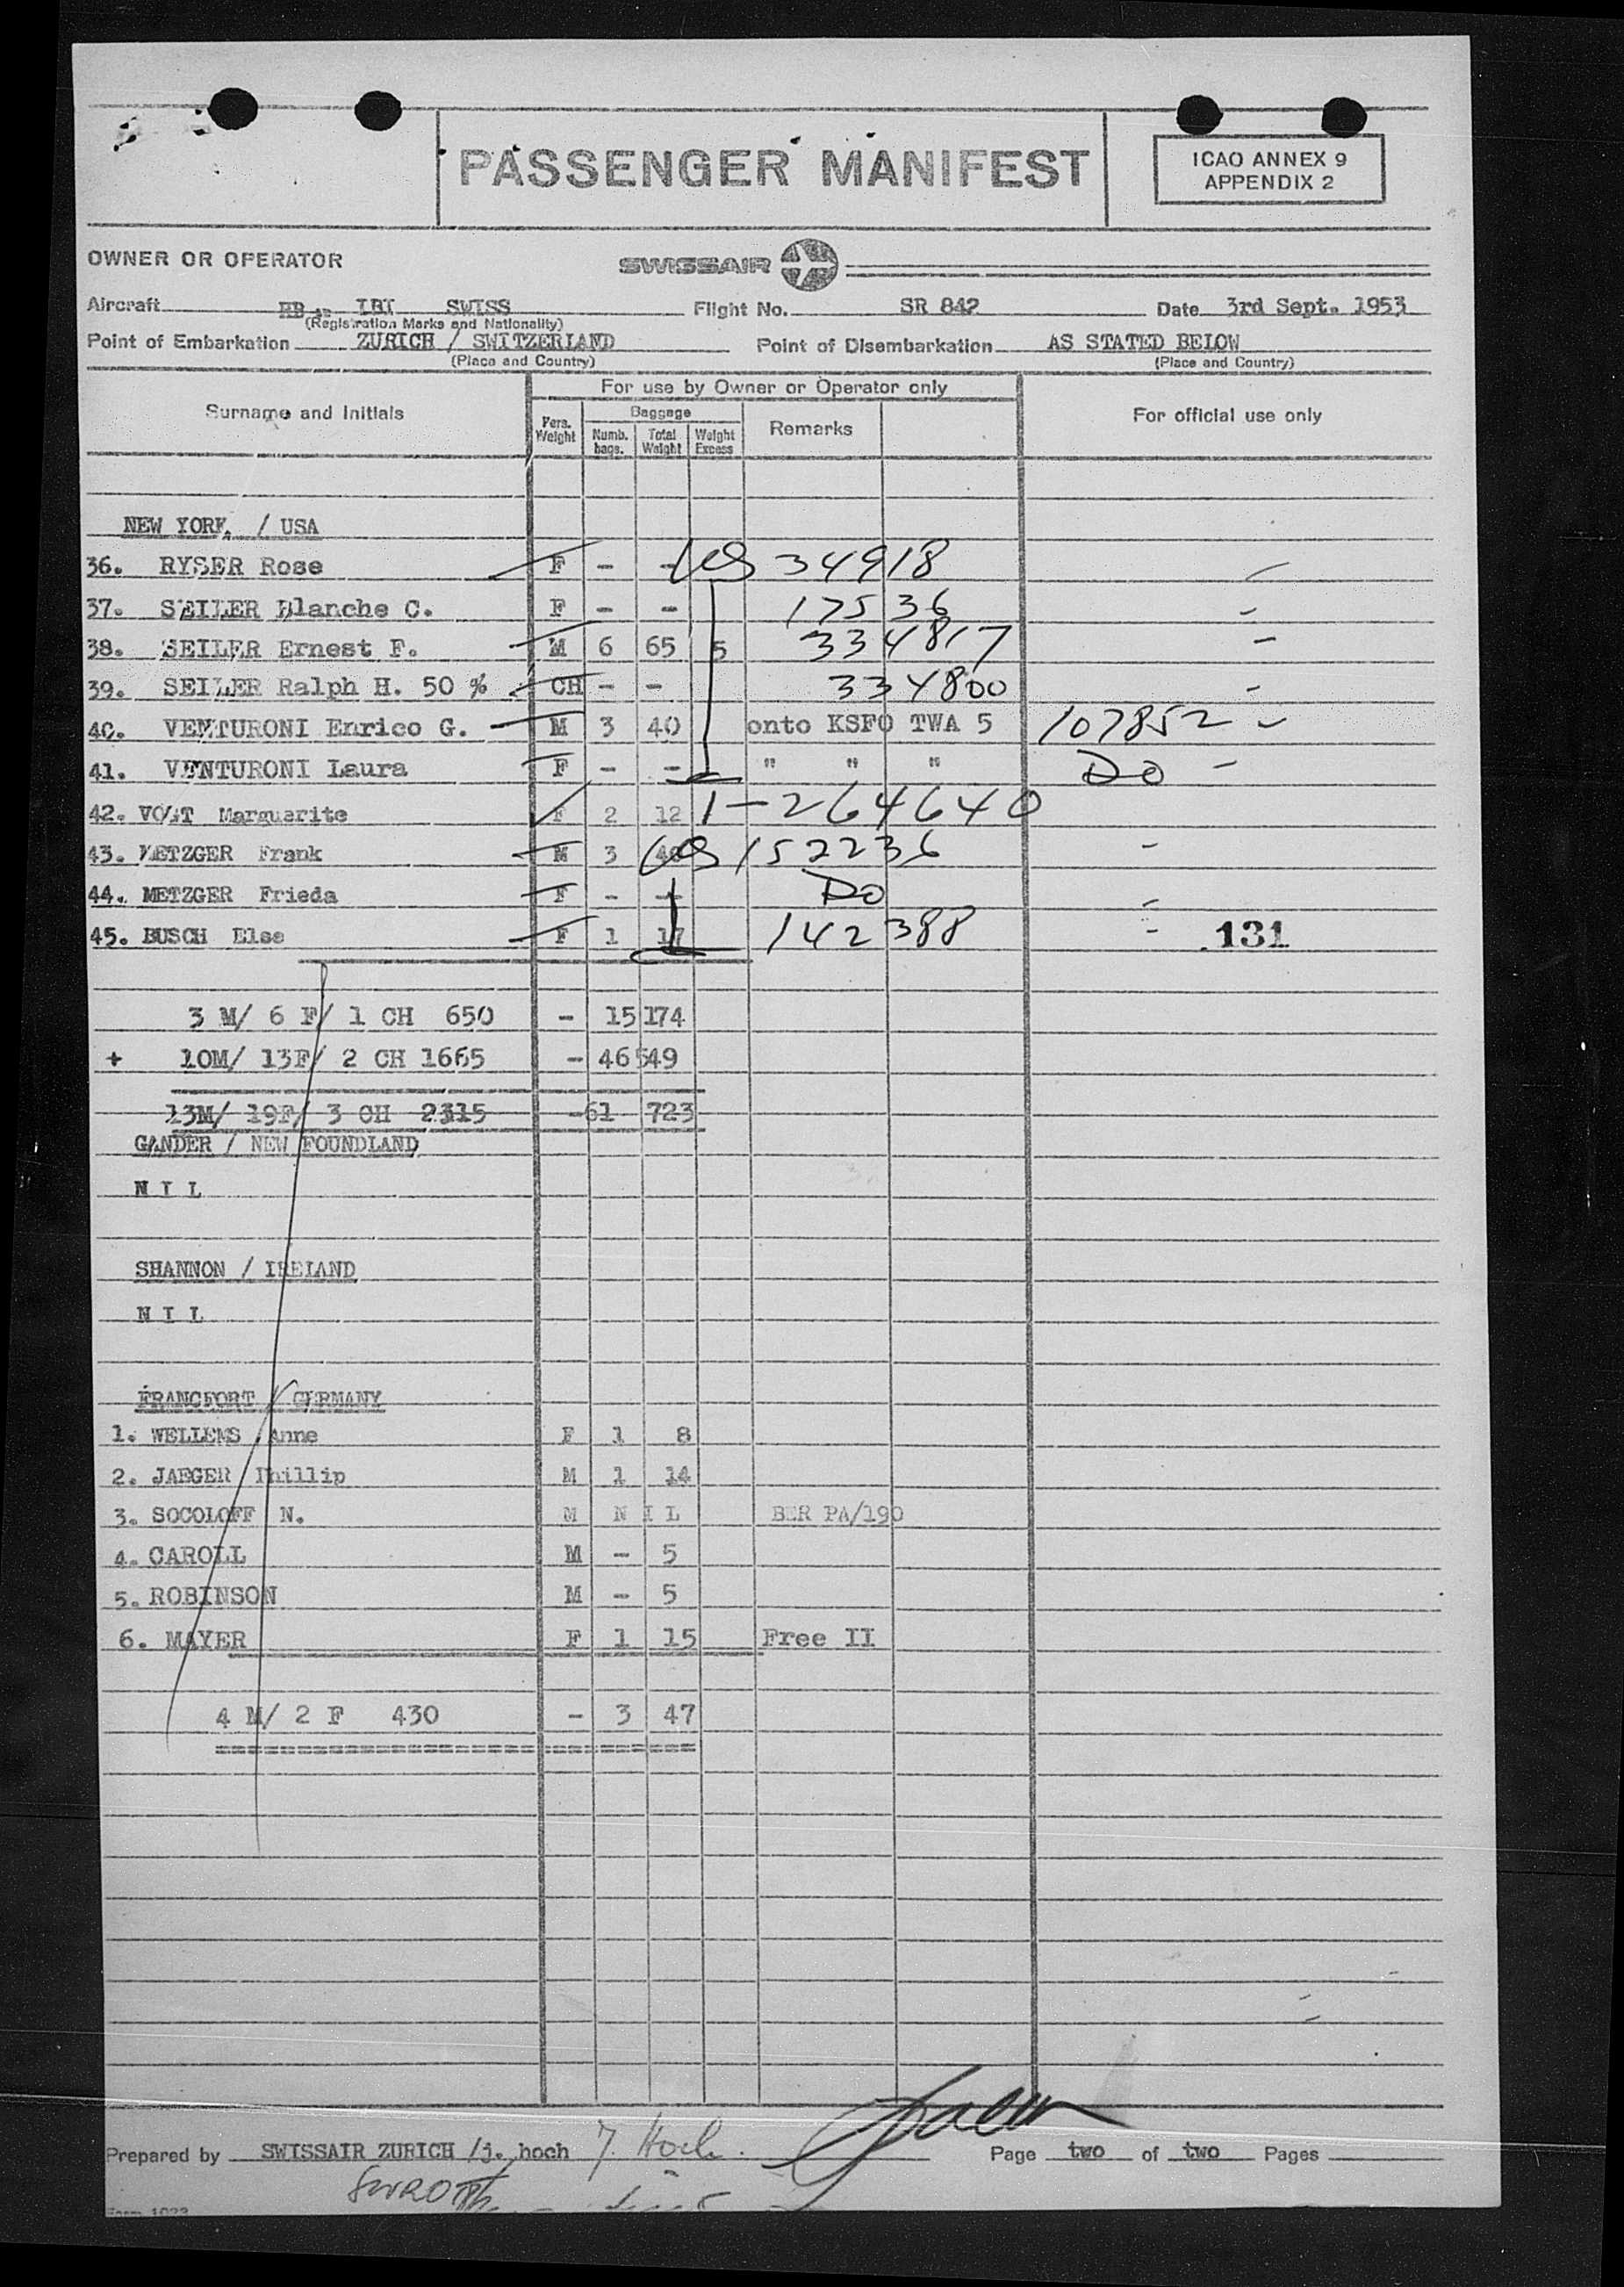 PASSENGER MANIFEST
ICAO ANNEX 9
APPENDIX 2
OWNER OR OPERATOR SWISSAIR
Aircraft HB - IBI SWISS Flight No. SR 842 Date 3rd Sept. 1953
(Registration Marks and Nationality)
Point of Embarkation ZURICH / SWITZERLAND Point of Disembarkation AS STATED BELOW
(Place and Country) (Place and Country)
For use by Owner or Operator only
Surname and Initials Pers. Weight Baggage Numb. bags. Total Weight Weight Excess Remarks For official use only
NEW YORK / USA
36. RYSER Rose F - - US 34918
37. SEILER Blanche C. F - - 17536
38. SEILER Ernest F. M 6 65 5 334817
39. SEILER Ralph H. 50 % CH - - 334800
40. VENTURONI Enrico G. M 3 40 onto KSFO TWA 5 107852
41. VENTURONI Laura F - - " " " DO
42. VOGT Marguerite F 2 12 1-264640
43. METZGER Frank M 3 40 US 152236
44. METZGER Frieda F - - DO
45. BUSCH Else F 1 17 142388 131
3 M/ 6 F/ 1 CH 650 - 15 174
+ 10M/ 13F/ 2 CH 1665 - 46 549
13M/ 19F/ 3 CH 2315 - 61 723
GANDER / NEW FOUNDLAND
N I L
SHANNON / IRELAND
N I L
FRANCFORT / GERMANY
1. WELLEMS Anne F 1 8
2. JAEGER Phillip M 1 14
3. SOCOLOFF N. M N I L BER PA/190
4. CAROLL M - 5
5. ROBINSON M - 5
6. MAYER F 1 15 Free II
4 M/ 2 F 430 - 3 47
Prepared by SWISSAIR ZURICH /j. hoch J. Hoch. Page two of two Pages
Form 1023